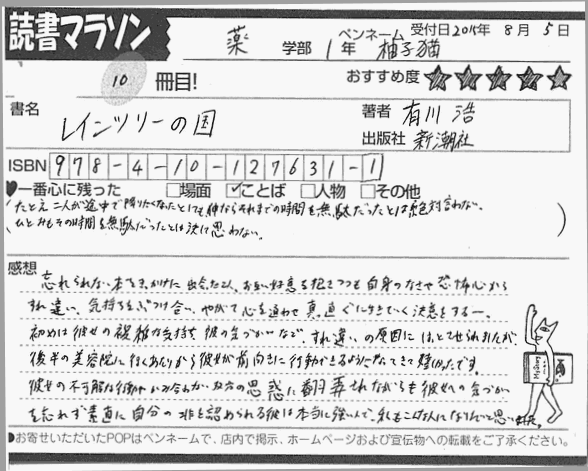 読書マラソン
薬 学部 1年 ペンネーム 柚子猫 受付日2015年 8月 5日
10 冊目! おすすめ度 ★★★★★
書名 レインツリーの国
著者 有川 浩
出版社 新潮社
ISBN 978-4-10-127631-1
♥一番心に残った □場面 ☑ことば □人物 □その他
(たとえ二人が途中で降りたくなったとしても伸ならそれまでの時間を無駄だったとは絶対言わない。
ひとみもその時間を無駄だったとは決して思わない。)
感想
忘れられない本をきっかけに出会った二人。お互い好意を抱きつつも自身の 恐怖心から
すれ違い、気持ちをぶつけ合い、やがて心を通わせ真っ直ぐに生きていく決意をする―。
初めは彼女の複雑な気持ち、彼の気づかいなど、すれ違いの原因にはっとさせられましたが、
後半の美容院に行くあたりから彼女が前向きに行動できるようになってきて嬉しかったです。
彼女の不可解な行動や 双方の思惑に翻弄されながらも彼女への気づかい
を忘れず素直に自分の非を認められる彼は本当に強い人で、私もこんな人になりたいと思いました。
●お寄せいただいたPOPはペンネームで、店内で掲示、ホームページおよび宣伝物への転載をご了承ください。